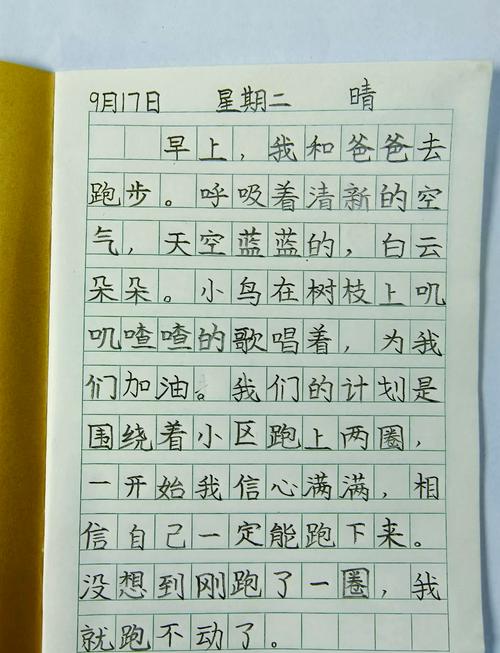 9月17日 星期二 晴
早上，我和爸爸去
跑步。呼吸着清新的空
气，天空蓝蓝的，白云
朵朵。小鸟在树枝上叽
叽喳喳的歌唱着，为我
们加油。我们的计划是
围绕着小区跑上两圈，
一开始我信心满满，相
信自己一定能跑下来。
没想到刚跑了一圈，我
就跑不动了。